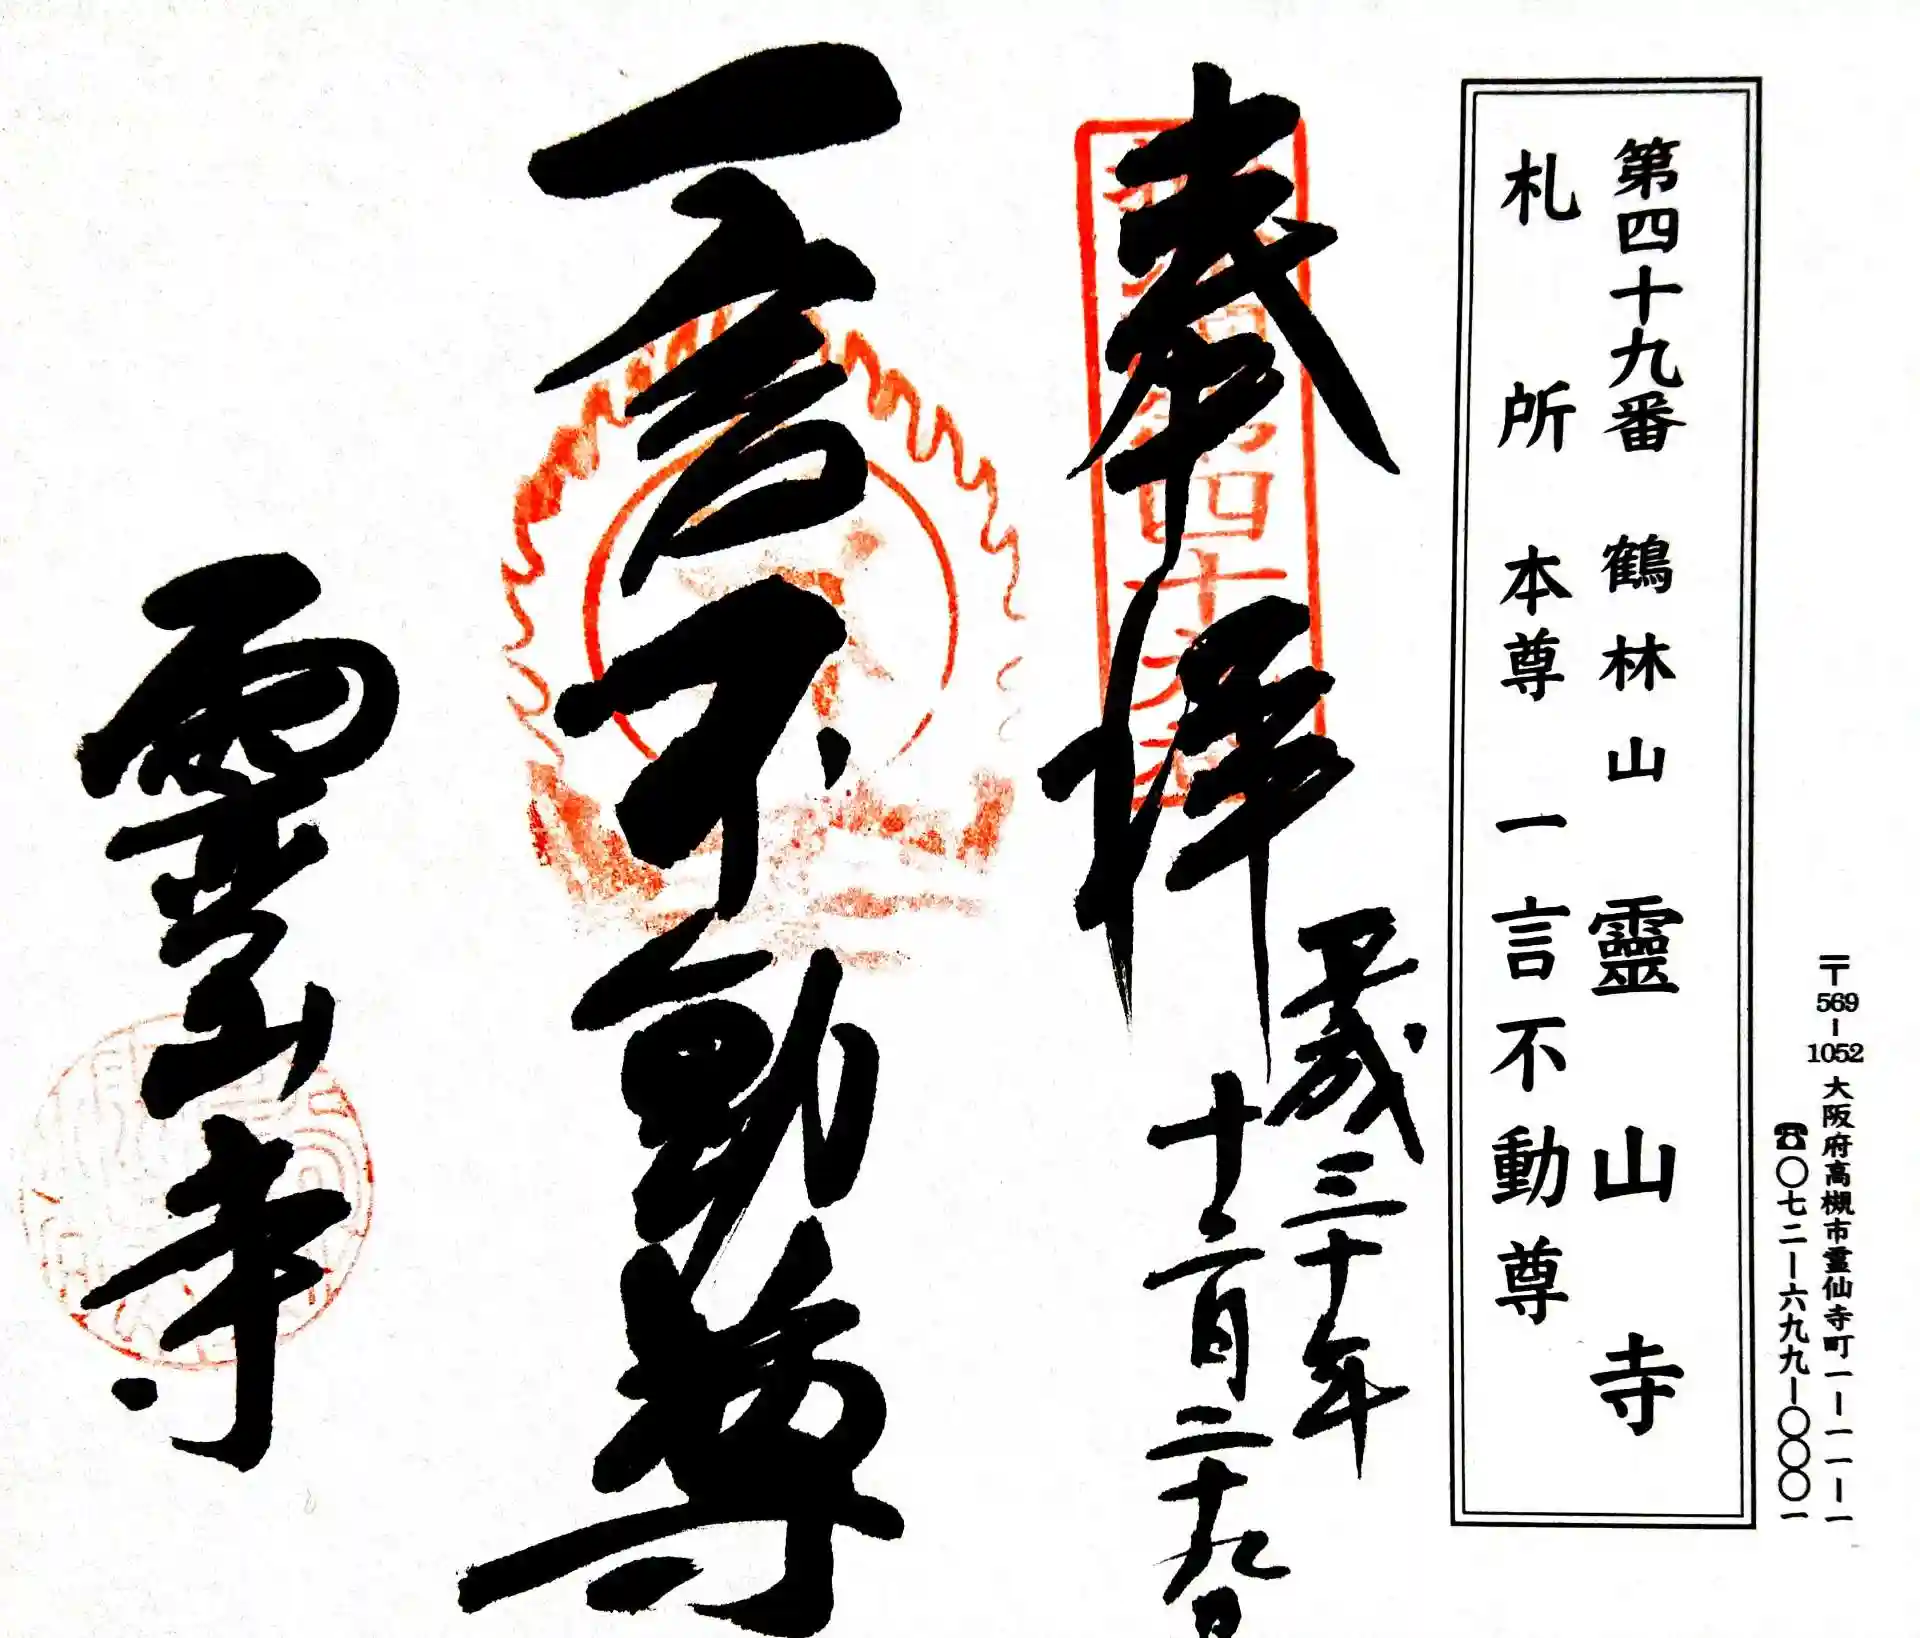 〒569-1052 大阪府高槻市霊仙寺町一-一一一-一
☎〇七二-六九九-〇〇〇一
第四十九番 鶴林山 靈山寺
札所本尊 一言不動尊
奉拝
平成三十年
十二月二十九日
第四十九番
一言不動尊
靈山寺